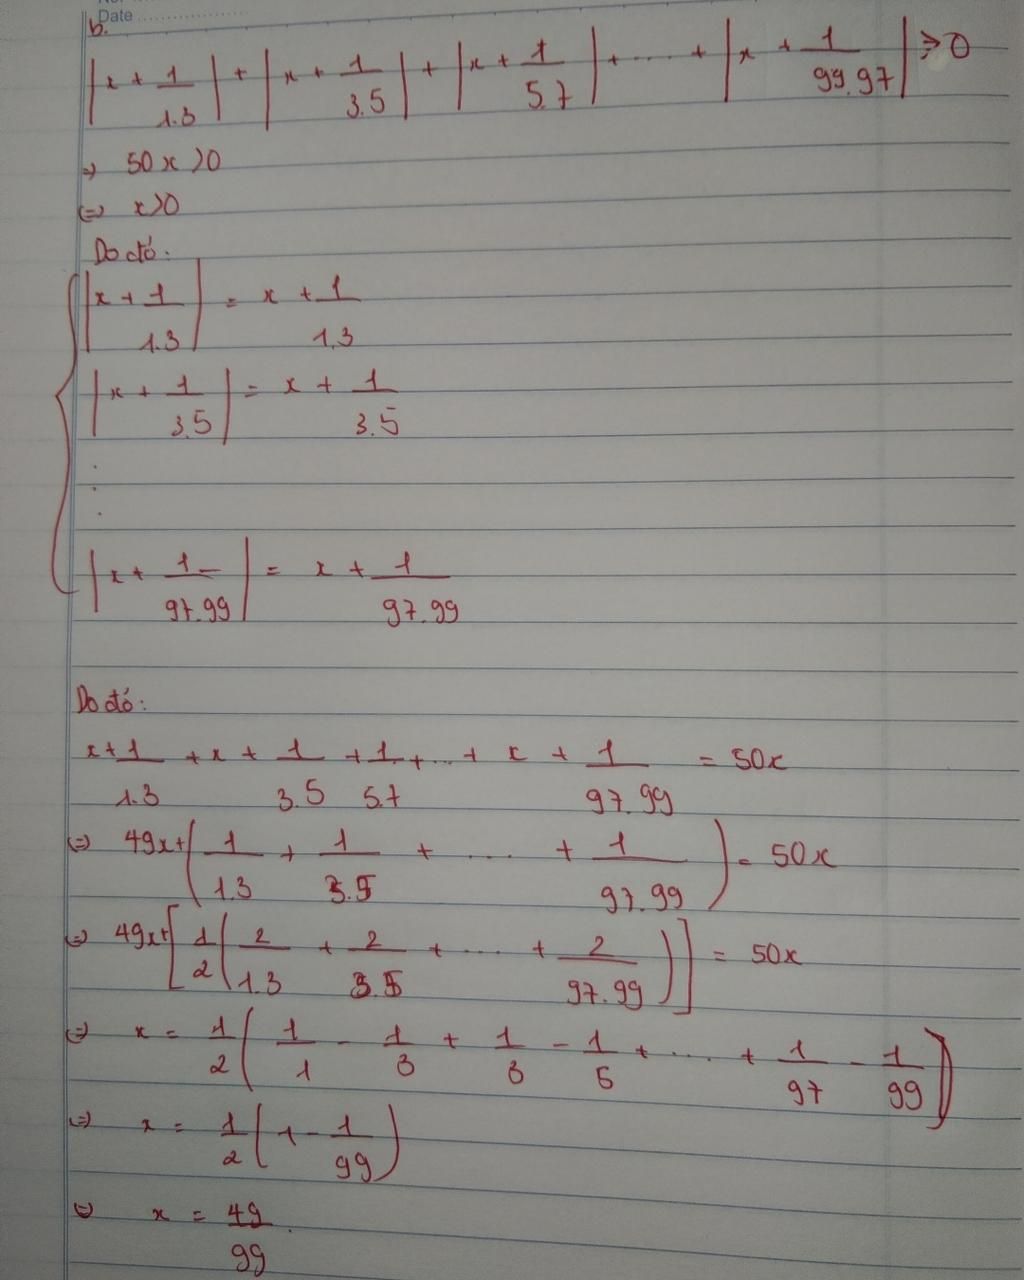 Date
b.
|x + 1/1.3| + |x + 1/3.5| + |x + 1/5.7| + ..... + |x + 1/99.97| ⩾ 0
=> 50x > 0
<=> x > 0
Do đó:
|x + 1/1.3| = x + 1/1.3
|x + 1/3.5| = x + 1/3.5
.
.
.
|x + 1/97.99| = x + 1/97.99
Do đó:
x + 1/1.3 + x + 1/3.5 + 1/5.7 + ... + x + 1/97.99 = 50x
<=> 49x + (1/1.3 + 1/3.5 + .... + 1/97.99) = 50x
<=> 49x + [1/2 (2/1.3 + 2/3.5 + .... + 2/97.99)] = 50x
<=> x = 1/2 (1/1 - 1/3 + 1/3 - 1/5 + .... + 1/97 - 1/99)
<=> x = 1/2 (1 - 1/99)
<=> x = 49/99.